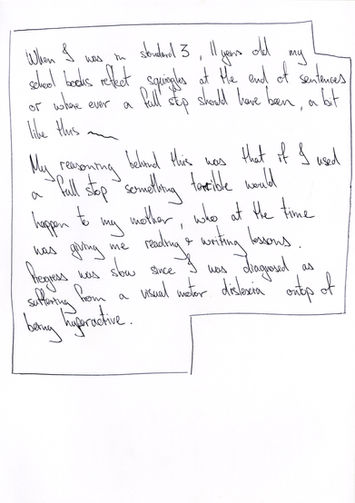 When I was in standard 3, 11 years old my
school books reflect squiggles at the end of sentences
or where ever a full stop should have been, a bit
like this
My reasoning behind this was that if I used
a full stop something terrible would
happen to my mother, who at the time
was giving me reading & writing lessons.
Progress was slow since I was diagnosed as
suffering from a visual motor dislexia ontop of
being hyperactive.